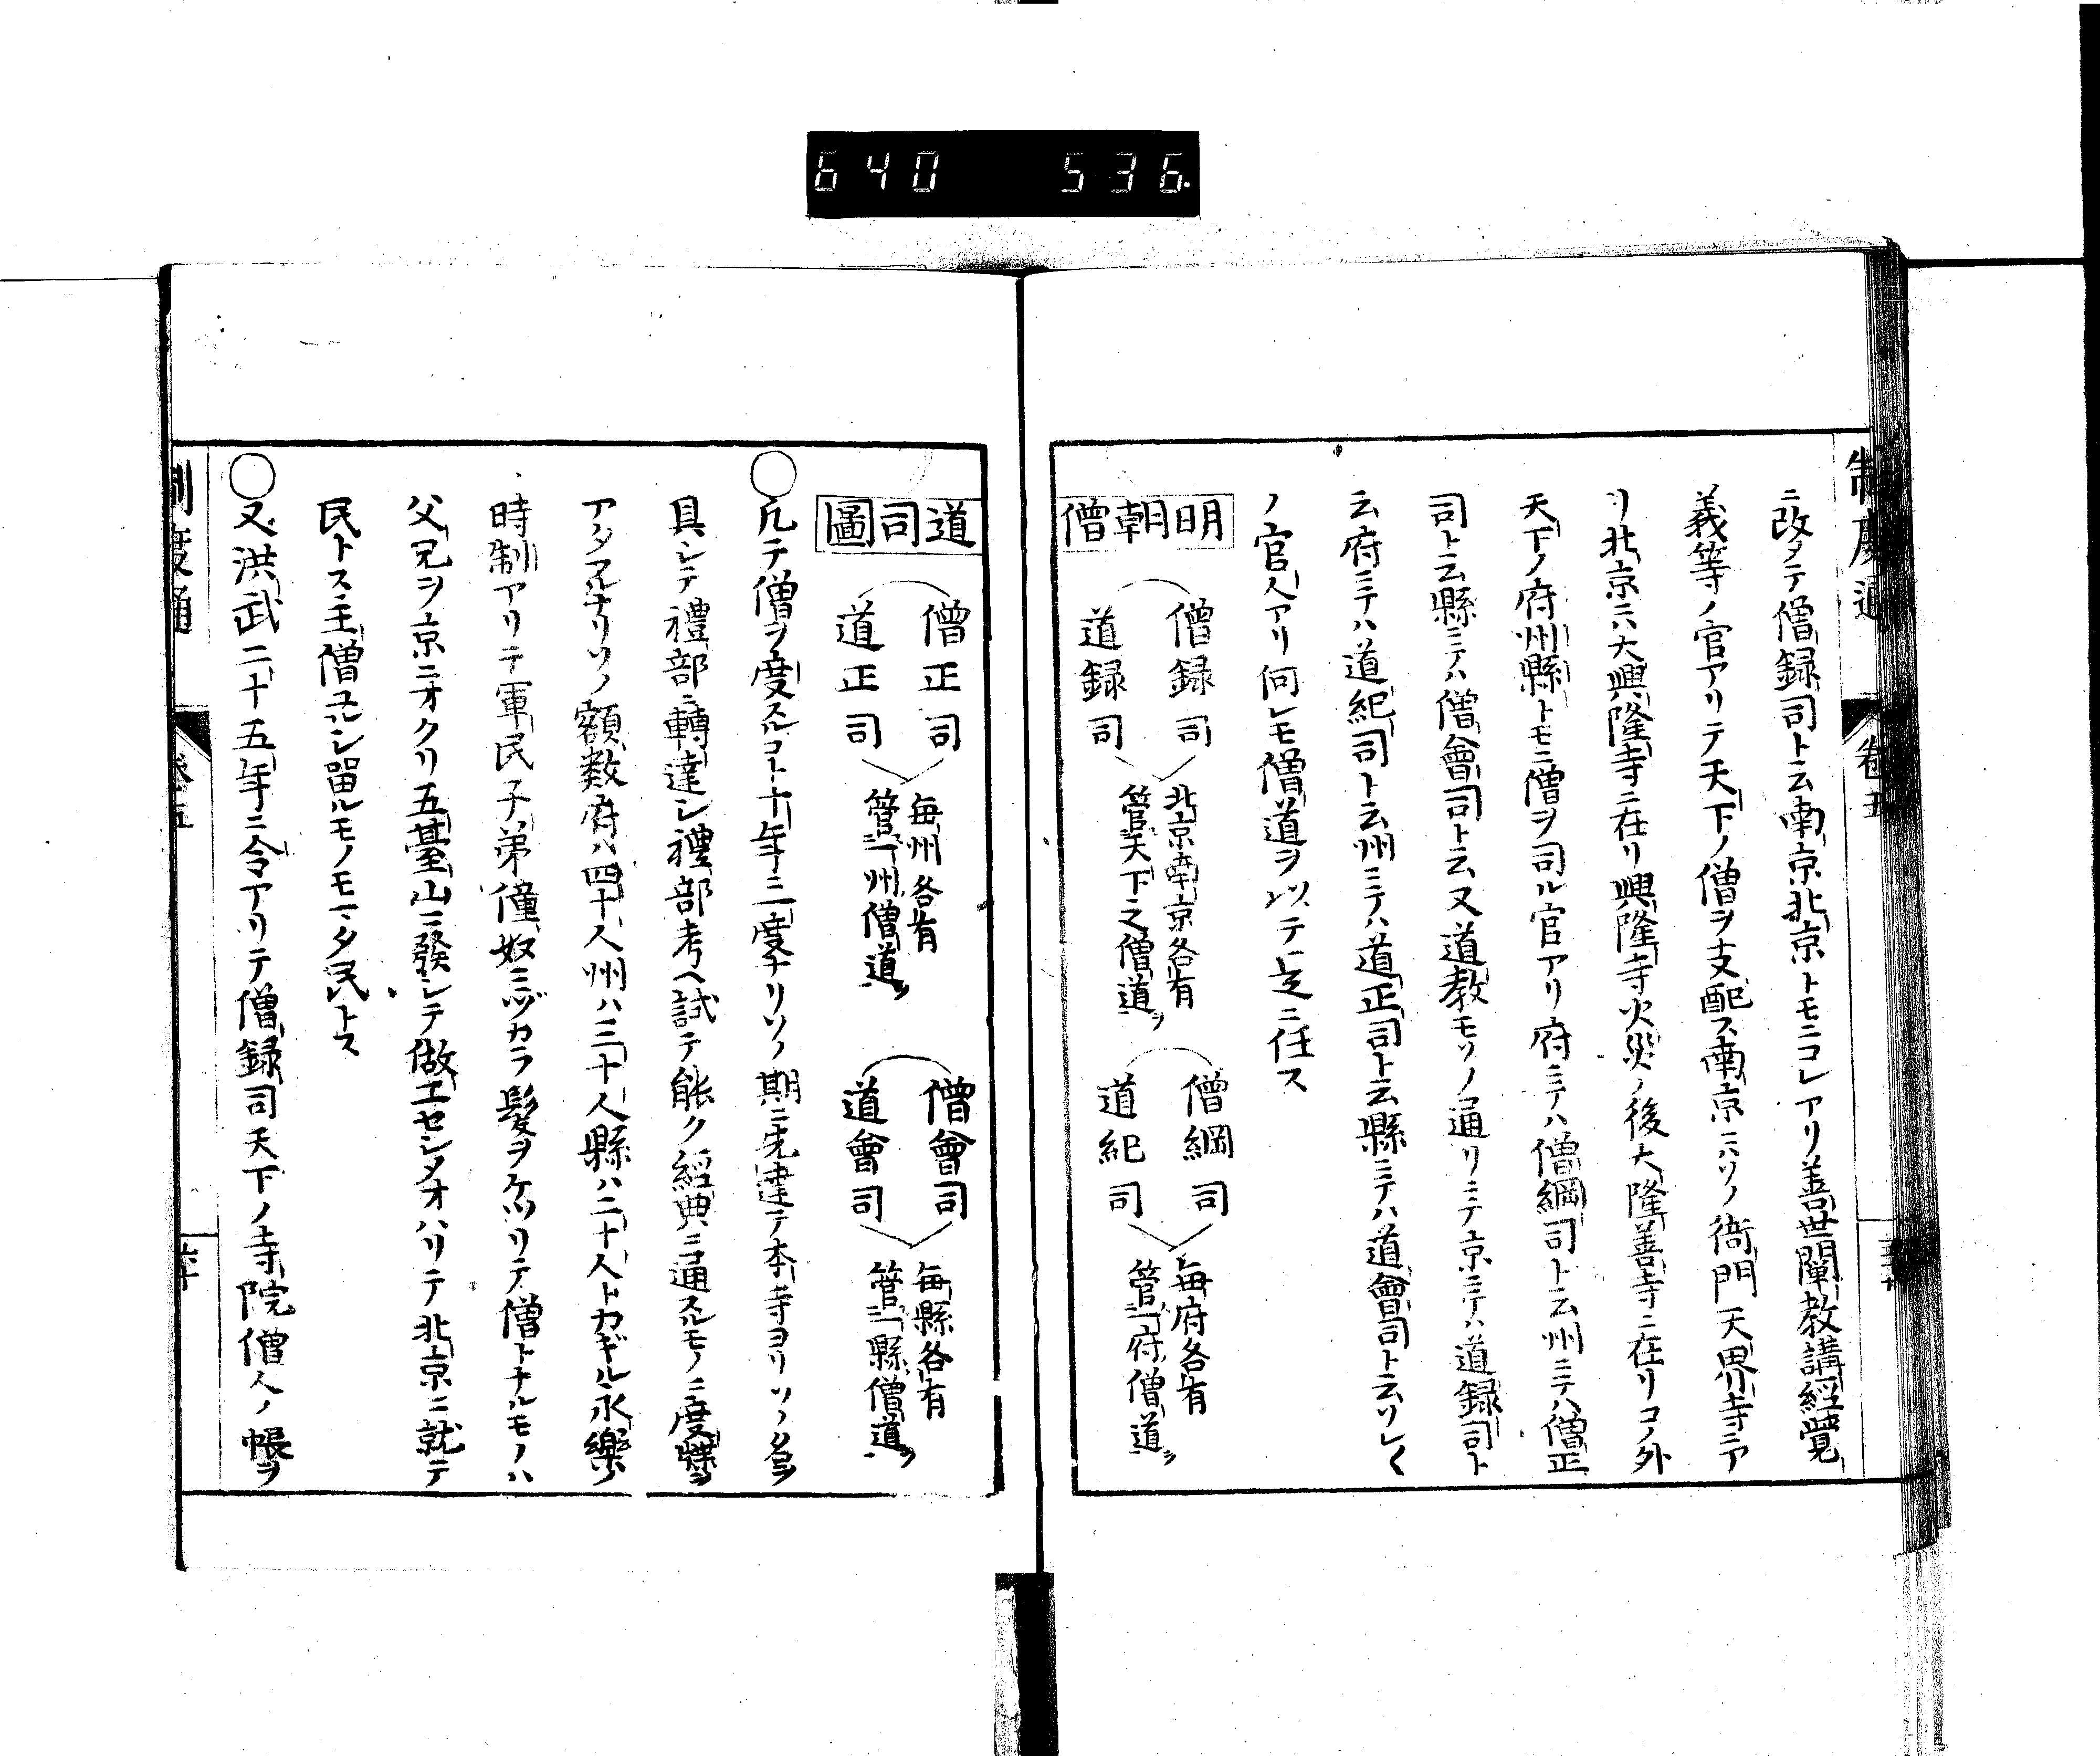 640 536.
制度通 卷五
ニ改メテ僧録司ト云南京北京トモニコレアリ善世闡教講經覺
義等ノ官アリテ天下ノ僧ヲ支配ス南京ニハソノ衙門天界寺ニア
リ北京ニハ大興隆寺ニ在リ興隆寺火災ノ後大隆善寺ニ在リコノ外
天下ノ府州縣トモニ僧ヲ司ル官アリ府ニテハ僧綱司ト云州ニテハ僧正
司ト云縣ニテハ僧會司ト云又道教モソノ通リニテ京ニテハ道録司ト
云府ニテハ道紀司ト云州ニテハ道正司ト云縣ニテハ道會司ト云ソレ〱
ノ官人アリ何レモ僧道ヲ以テ是ニ任ス
明朝僧
僧録司
道録司
北京南京各有
管天下之僧道ヲ
僧綱司
道紀司
毎府各有
管一府僧道ヲ
道司圖
僧正司
道正司
毎州各有
管一州僧道ヲ
僧會司
道會司
毎縣各有
管一縣僧道ヲ
○凡テ僧ヲ度スルコト十年ニ一度ナリソノ期ニ先達テ本寺ヨリソノ名ヲ
具シテ禮部ニ轉達シ禮部考ヘ試テ能ク經典ニ通スルモノニ度牒ヲ
アタフルナリソノ額数府ハ四十人州ハ三十人縣ハ二十人トカギル永樂ノ
時制アリテ軍民子弟僮奴ミヅカラ髮ヲケヅリテ僧トナルモノハ
父兄ヲ京ニオクリ五臺山ニ發シテ做工センメオハリテ北京ニ就テ
民トス主僧ユルシ畱ルモノモマタ民トス
○又洪武二十五年ニ令アリテ僧録司天下ノ寺院僧人ノ帳ヲ
制度通 卷五